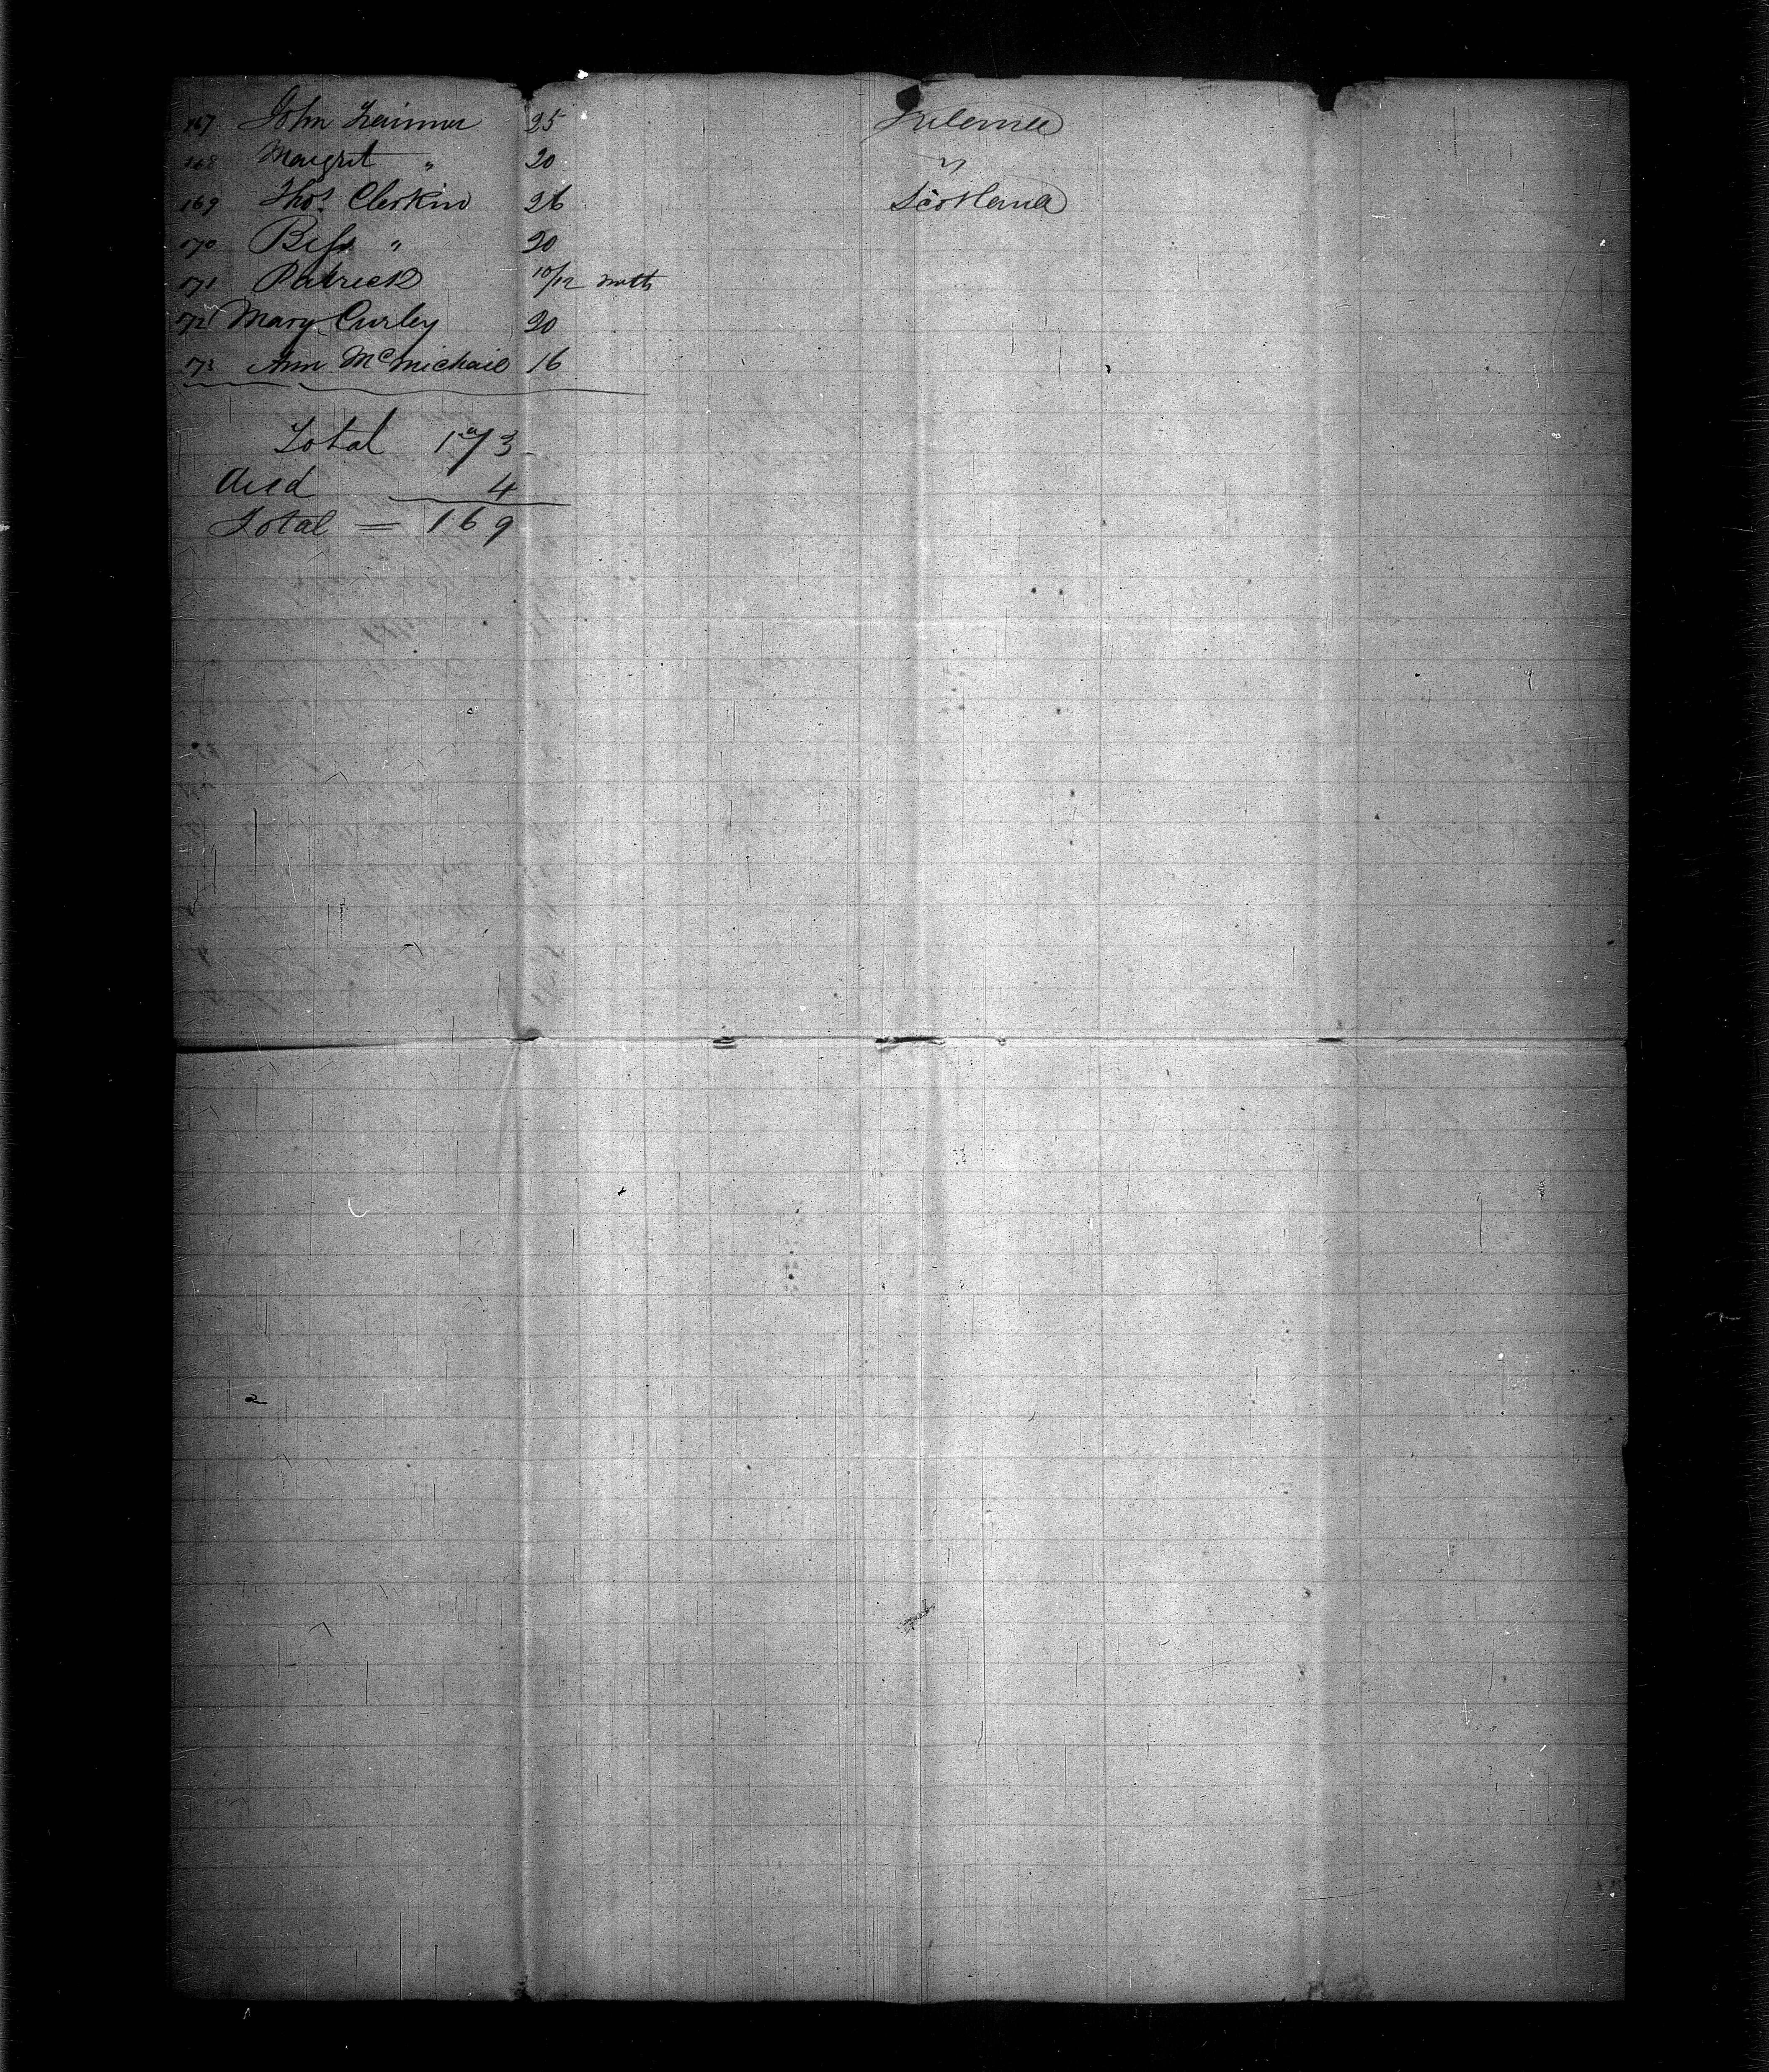 167 John Lerimer 25 Irelernd
168 Margrit " 20 "
169 Thos. Clerkin 26 Scotland
170 Bess " 20
171 Patrick 10/12 mth
172 Mary Curley 20
173 Ann McMichael 16
Total 173
Died 4
Total = 169